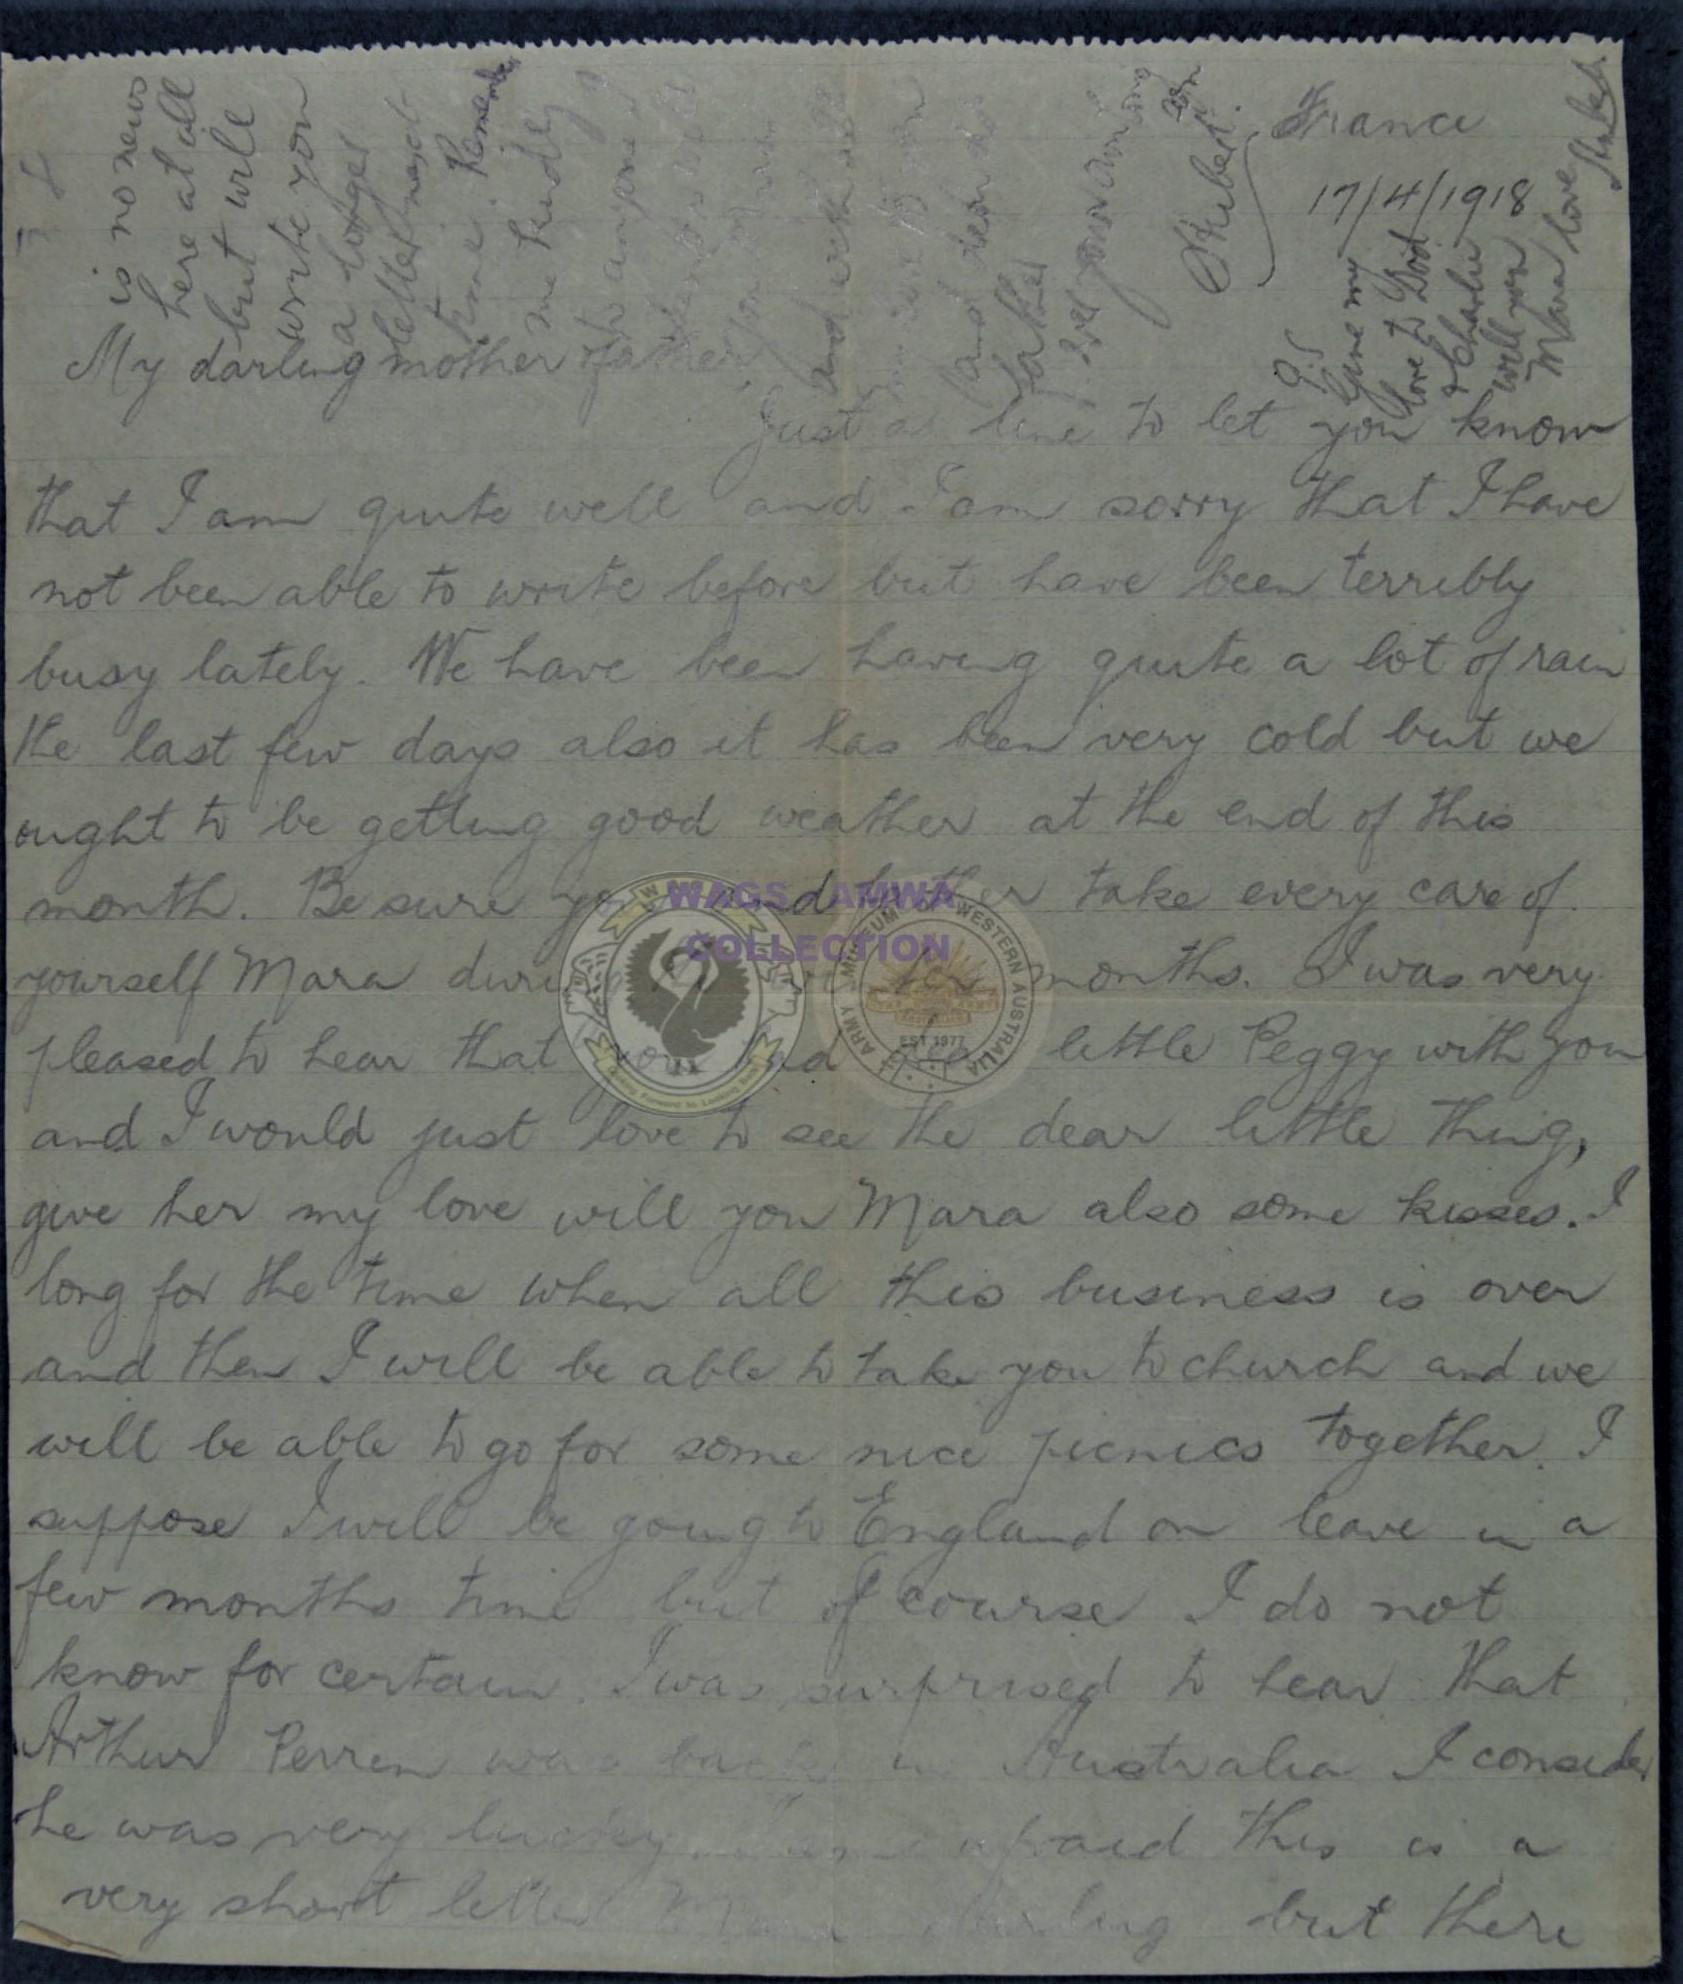 France
17/4/1918
My darling mother & father
Just a line to let you know
that I am quite well and I am sorry that I have
not been able to write before but have been terribly
busy lately. We have been having quite a lot of rain
the last few days also it has been very cold but we
ought to be getting good weather at the end of this
month. Be sure you and father take every care of
yourself Mara during the winter months. I was very
pleased to hear that you had little Peggy with you
and I would just love to see the dear little thing,
give her my love will you Mara also some kisses. I
long for the time when all this business is over
and then I will be able to take you to church and we
will be able to go for some nice picnics together. I
suppose I will be going to England on leave in a
few months time but of course I do not
know for certain. I was surprised to hear that
Arthur Perren was back in Australia I consider
he was very lucky. I am afraid this is a
very short letter Mara darling but there
is no news
here at all
but will
write you
a longer
letter next
time. Remember
me kindly
to anyone
and with
love to you
and dear
father
I am your loving
son
Hubert.
P.S
Give my
love to Dod
& Charlie
will you
Mara love
Hubert
WAGS AMWA
COLLECTION
ARMY MUSEUM OF WESTERN AUSTRALIA
EST 1977